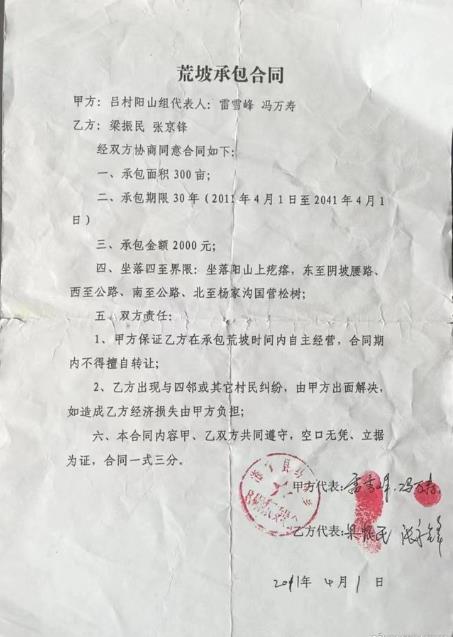 荒坡承包合同
甲方：吕村阳山组代表人：雷雪峰 冯万寿
乙方：梁振民 张京锋
经双方协商同意合同如下：
一、承包面积300亩；
二、承包期限30年（2011年4月1日至2041年4月1
日）
三、承包金额2000元；
四、坐落四至界限：坐落阳山上疙瘩，东至阴坡腰路、
西至公路、南至公路、北至杨家沟国营松树；
五、双方责任：
1、甲方保证乙方在承包荒坡时间内自主经营，合同期
内不得擅自转让；
2、乙方出现与四邻或其它村民纠纷，由甲方出面解决，
如造成乙方经济损失由甲方负担；
六、本合同内容甲、乙双方共同遵守，空口无凭、立据
为证，合同一式三分。
甲方代表：雷雪峰、冯万寿
乙方代表：梁振民 张京锋
2011年 4月 1 日